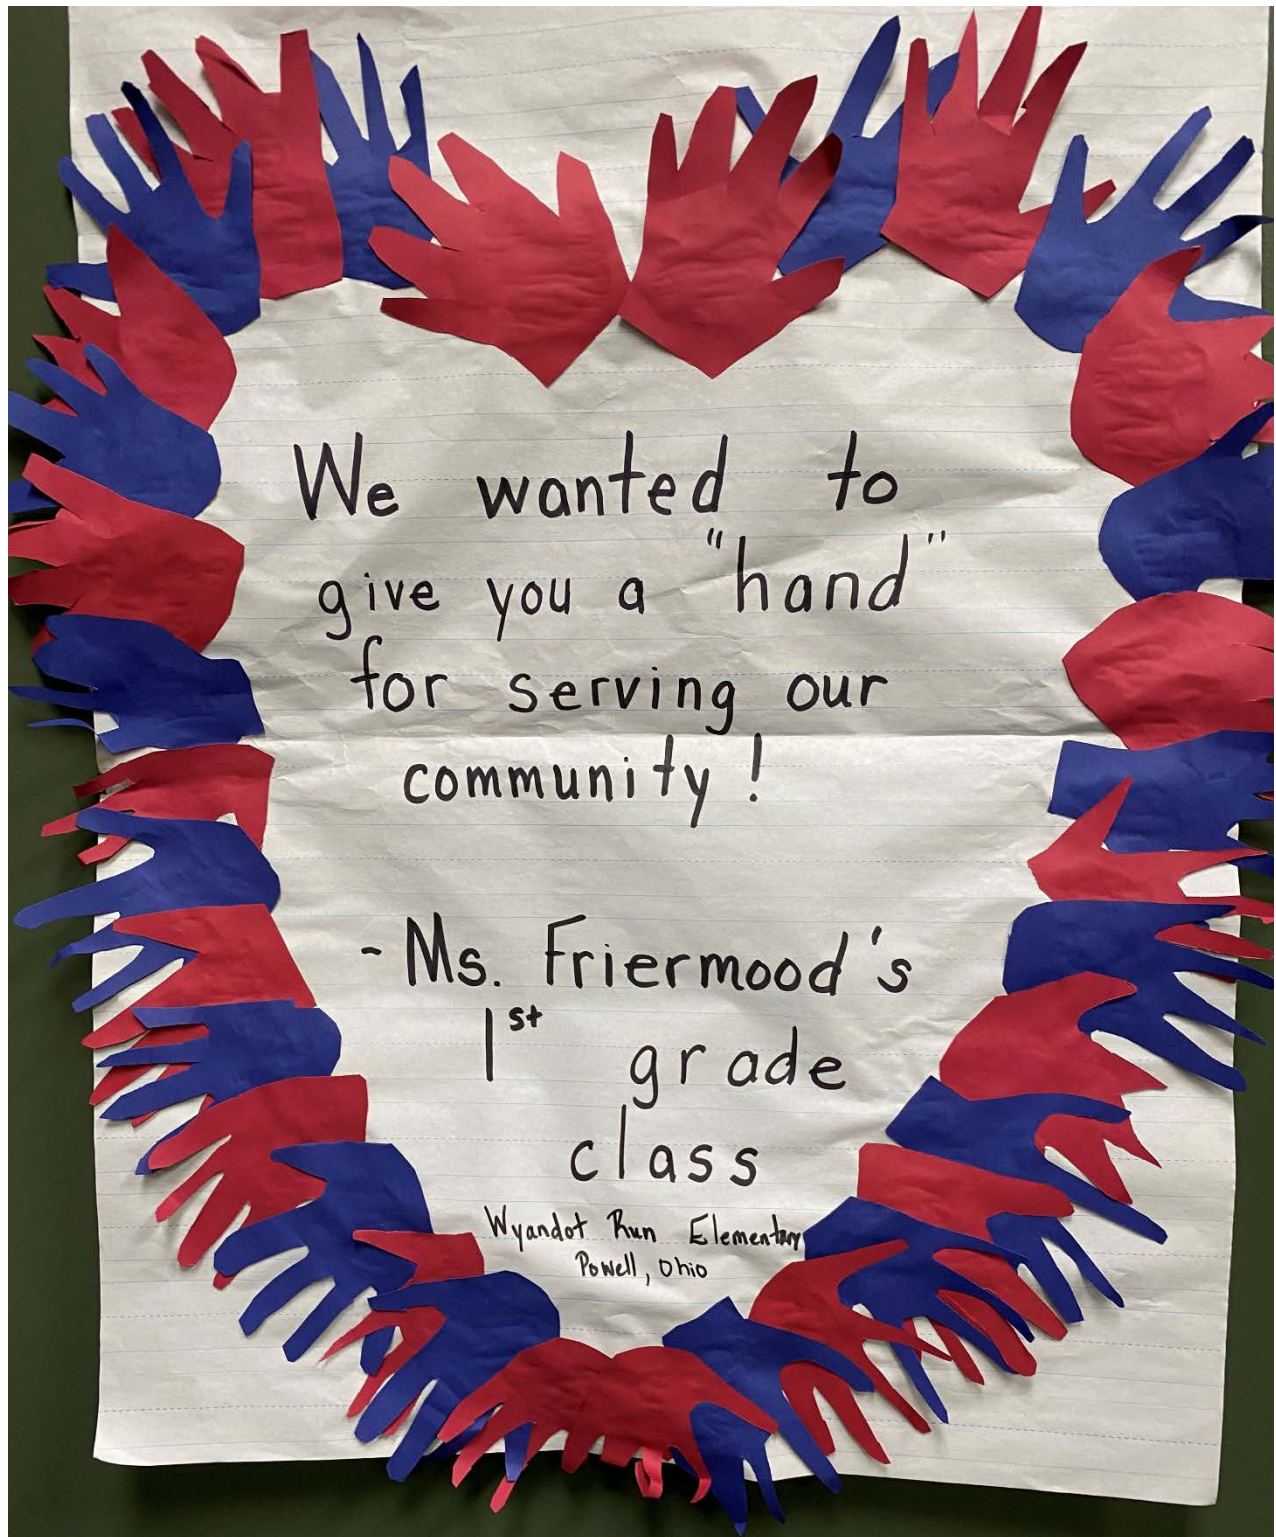 We wanted to
give you a "hand"
for serving our
community!
- Ms. Friermood's
1st grade
class
Wyandot Run Elementary
Powell, Ohio